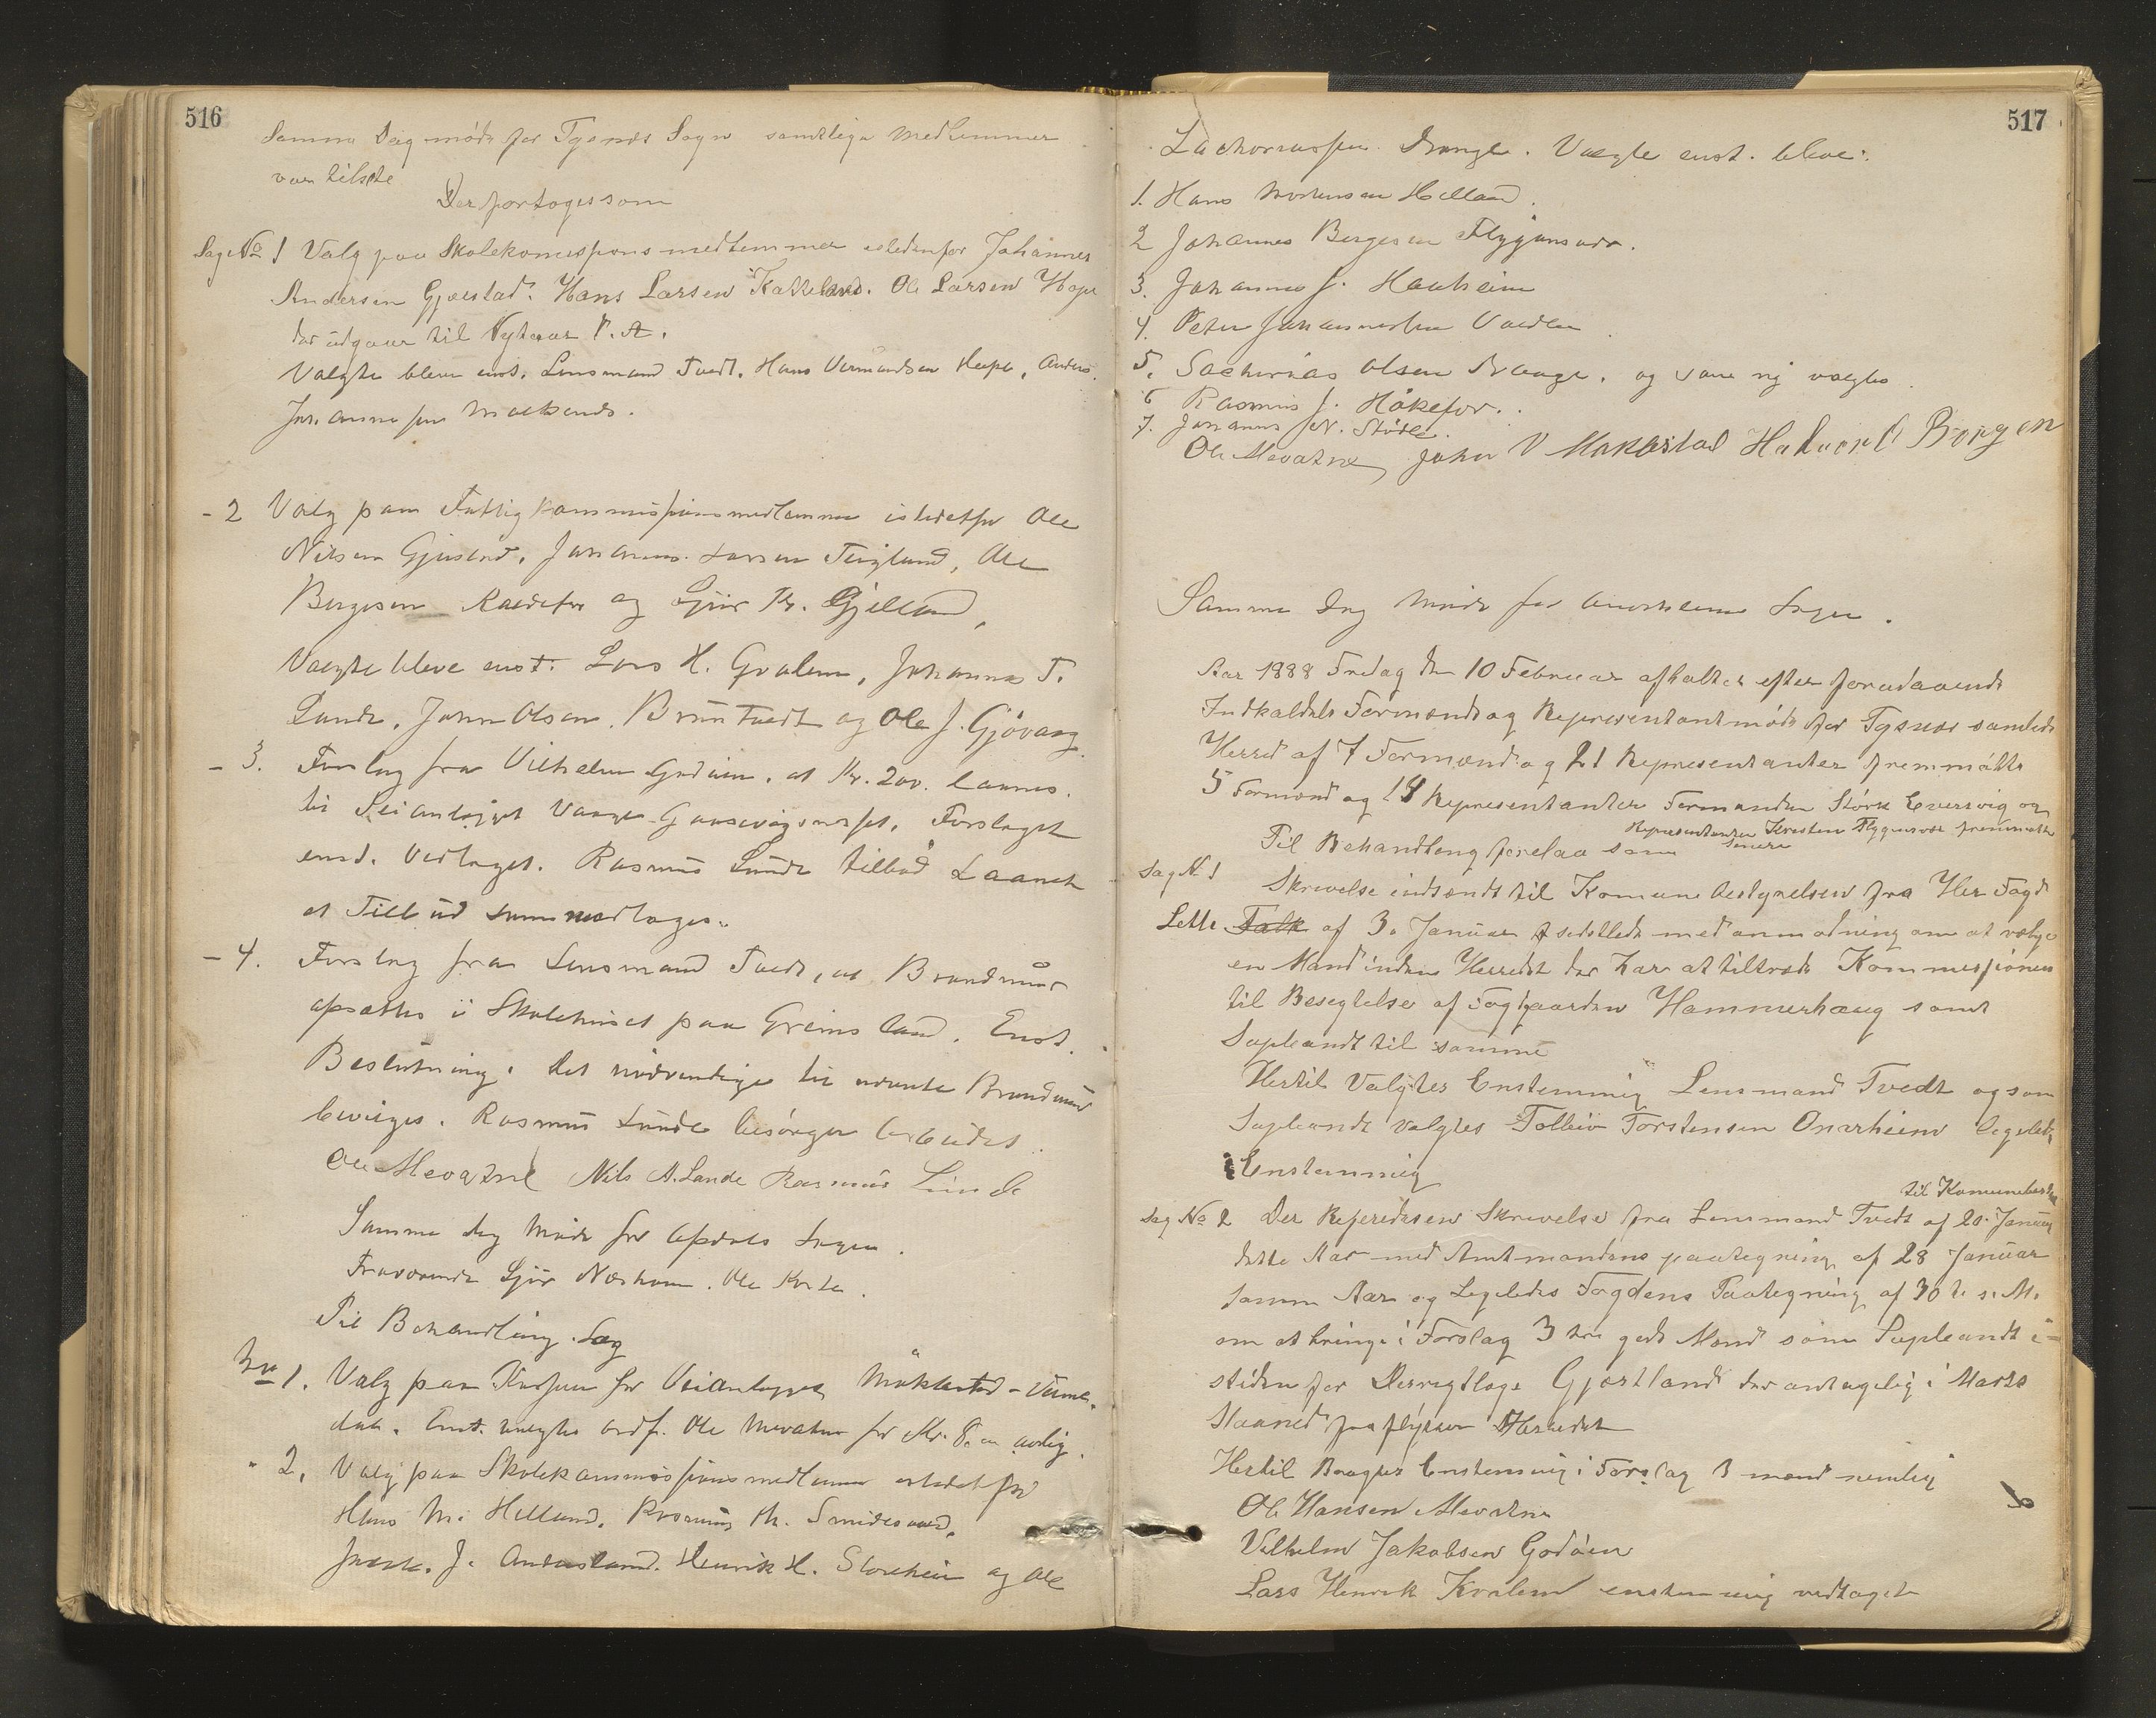 516
Samme Dag møde for Tysnes Sogn samtlige Medlemmer
var tilstede
Der foretoges som
Sag No 1 Valg paa Skolekomissionsmedlemmer istedenfor Johannes
Andersen Gjerstad. Hans Larsen Kaltveland. Ole Larsen Hope
der udgaar til Nytaar d. A.
Valgte bleve enst. Lensmand Tvedt. Hans Vermundsen Heepe, Anders
Johannessen Malkenes.
- 2 Valg paa Fattigkommissionsmedlemmer istedetfor Ole
Nilsen Gjersand, Johannes Larsen Teigland, Ole
Bergesen Raadefor og Sjur Kr. Gjelland,
Valgte bleve enst. Lars H. Kvalem, Johannes T.
Lunde, John Olsen Bruntvedt og Ole J. Gjøvaag.
- 3. Forslag fra Vilhelm Godøen, at Kr. 200. laanes.
til Veianlægget Vaage-Gaasevigsnæset. Forslaget
enst. Vedtaget. Rasmus Lunde tilbød Laanet
et Tilbud som modtoges.
- 4. Forslag fra Lensmand Tvedt, at Brandmur
opsættes i Skolehuset paa Greinsland. Enst.
Beslutning. Det nødvendige til nævnte Brandmur
beviges. Rasmus Lunde besørger Arbeidet.
Ole Mevatne Nils A. Lande Rasmus Lunde
Samme dag Møde for Opdals Sogn.
Fraværende Sjur Neshem. Ole Kvite.
Til Behandling Sag
No 1. Valg paa Kasser for Veianlægget Møklestad - Ume-
dal. Enst. valgtes Ordf. Ole Mevatne for Kr. 8. aarlig.
" 2. Valg paa Skolekommissionsmedlemmer istedetfor
Hans M. Helland, Rasmus M. Smidsvaar,
J. Anderland. Henrik H. Storheim og Ole
517
Zachariassen Drange. Valgte enst. bleve:
1. Hans Mortensen Helland.
2 Johannes Bergesen Flygansvær.
3. Johannes J. Hauheim
4. Peter Johannessen Vadla
5. Sacharias Olsen Drange. og saa ny valgtes
6 Rasmus J. Håkefor.
7. Johannes N. Støle.
Ole Mevatne John V Møklestad Halvor O Borgen
Samme dag Møde for Onarheims Sogn.
Aar 1888 Fredag den 10 Februar afholtes efter forudgaaende
Indkaldelse Formænds og Representantmøde for Tysnes samlede
Herred af 7 Formænd og 21 Representanter fremmødte
5 Formænd og 18 Representanter Formanden Størk Eversvig og
Representanten Kristen Flygensvær fremmødte
senere
Til Behandling forelaa som
Sag N. 1 Skrivelse indsendt til Komunebestyrelsen fra Her Fogd
Lette Falk af 3. Januar sidstleden med anmodning om at vælge
en Mand inden Herredet der har at tiltræde Kommissionen
til Besigtelse af Foggaarden Hammerhaug samt
Supleandt til samme
Hertil Valgtes Enstemmig Lensmand Tvedt og som
Supleandt valgtes Tolleiv Torstensen Onarheim ligeledes
Enstemmig
til Komunebest
Sag No 2 Der Refereredes en Skrivelse fra Lensmand Tvedt af 20. Januar
dette Aar med Amtmandens paategning af 28 Januar
samme Aar og Ligeledes Fogdens Paategning af 30 te s. M.
om at bringe i Forslag 3 tre gode Mænd som Supleandt i-
steden for Gjøstland der antagelig i Marts
Maaned fraflytter Herredet
Hertil Bragtes Enstemmig i Forslag 3 mænd nemlig
Ole Hansen Mevatne
Vilhelm Jakobsen Godøen
Lars Henrik Kvalem enstemmig vedtaget